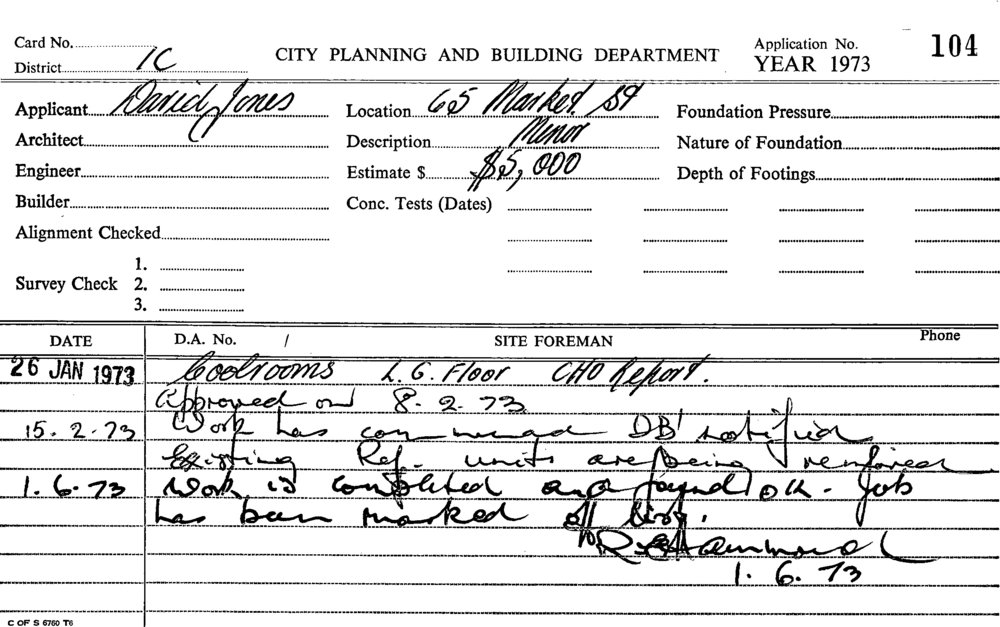 Card No.
District 1C
CITY PLANNING AND BUILDING DEPARTMENT
Application No. 104
YEAR 1973
Applicant David Jones
Location 65 Market St
Foundation Pressure
Architect
Description Minor
Nature of Foundation
Engineer
Estimate $ $5,000
Depth of Footings
Builder
Conc. Tests (Dates)
Alignment Checked
Survey Check
1.
2.
3.
DATE
D.A. No. /
SITE FOREMAN
Phone
26 JAN 1973 Coolrooms L.G. Floor CHO Report.
Approved on 8.2.73
15.2.73 Work has commenced DB notified
Existing Ref. units are being
1.6.73 Work is completed and found OK. Job
has been marked off
1.6.73
C OF S 6760 T6